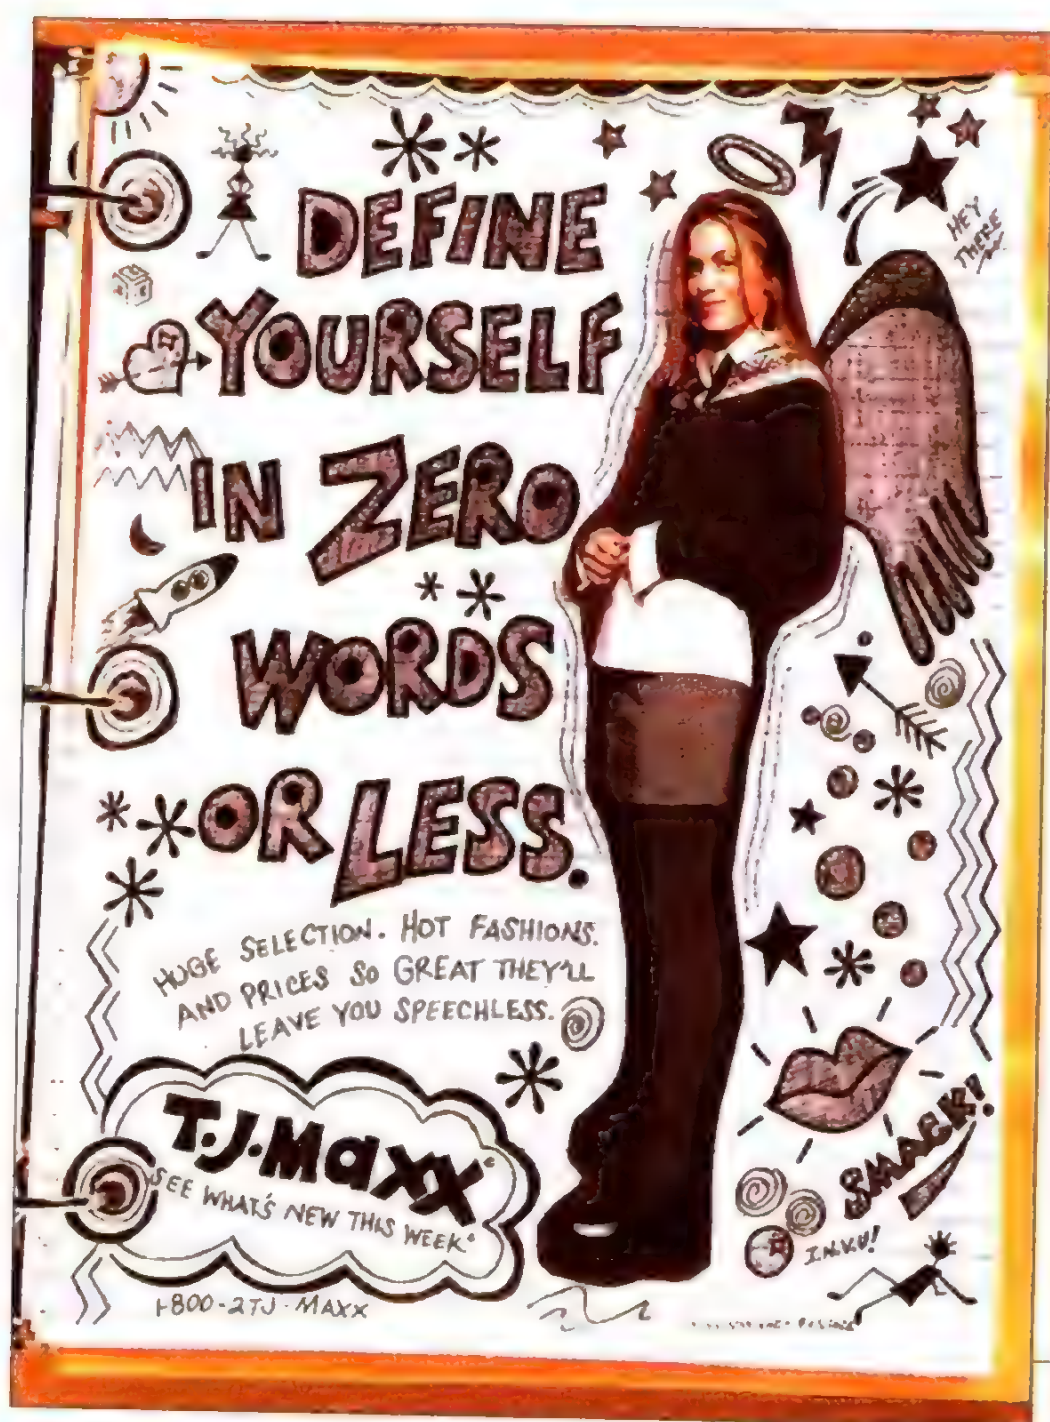 HEY
THERE
DEFINE
YOURSELF
IN ZERO
WORDS
OR LESS.
HUGE SELECTION. HOT FASHIONS.
AND PRICES SO GREAT THEY'LL
LEAVE YOU SPEECHLESS.
T.J.Maxx
SEE WHAT'S NEW THIS WEEK
1-800-2TJ-MAXX
SMACK!
I.N.V.U!